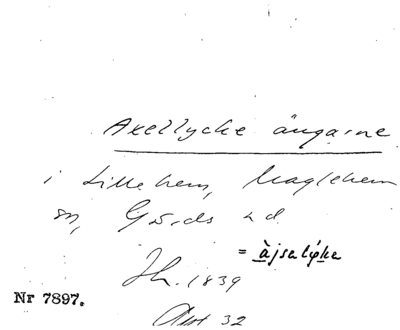 Axellycke ängarne
i Lillehem, Maglehem
sn, Gärds hd.
= àjsalýke
Jh. 1839
Nr 7897.
Akt 32